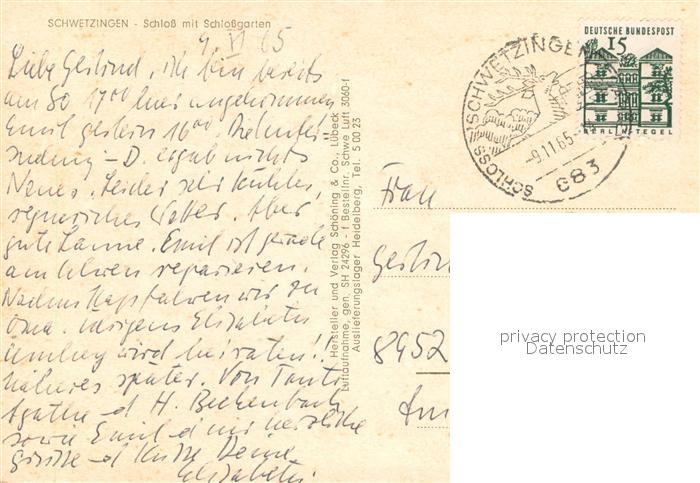 SCHWETZINGEN - Schloß mit Schloßgarten
9. VI 65
Liebe Gerlind, ich bin bereits
am So 17⁰⁰ hier angekommen
Emil gestern 16⁰⁰. Die Unter-
suchung - D. ergab nichts
Neues. Leider sehr kühles,
regnerisches Wetter. Aber
gute Laune. Emil ist gerade
am Uhren reparieren.
Nachmittags fahren wir zu
Oma. Morgens Elisabeth
wird heiraten!!
Näheres später. Von Tante
Agathe d H. Beckenbach
sowie Emil d mir herzliche
Grüsse d Küsse Deine
Elisabeth
Hersteller und Verlag Schöning & Co., Lübeck
Luftaufnahme, gen. SH 24296 - f Bestellnr. Schwe Luft 3060-f
Auslieferungslager Heidelberg, Tel. 5 00 23
SCHLOSS SCHWETZINGEN
-9.11.65-
683
DEUTSCHE BUNDESPOST
15
BERLIN-TEGEL
Frau
Gerlin
8952
privacy protection
Datenschutz